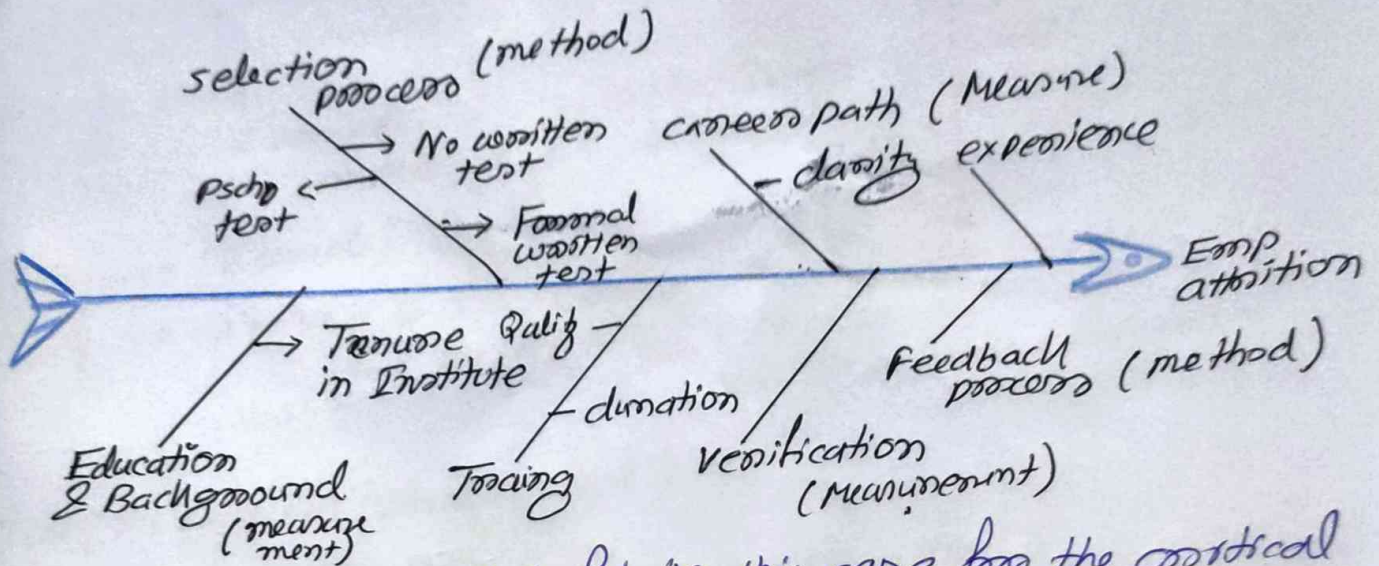 selection (method)
process
→ No written
test
Psch
test
→ Formal
written
test
career path (Measure)
- clarity
experience
Emp
attrition
→ Tenure
in Institute
Qulity -
- duration
Feedback
process (method)
Education
& Background
(measure
ment)
Tracing
Verification
(Measurement)
this case for the critical